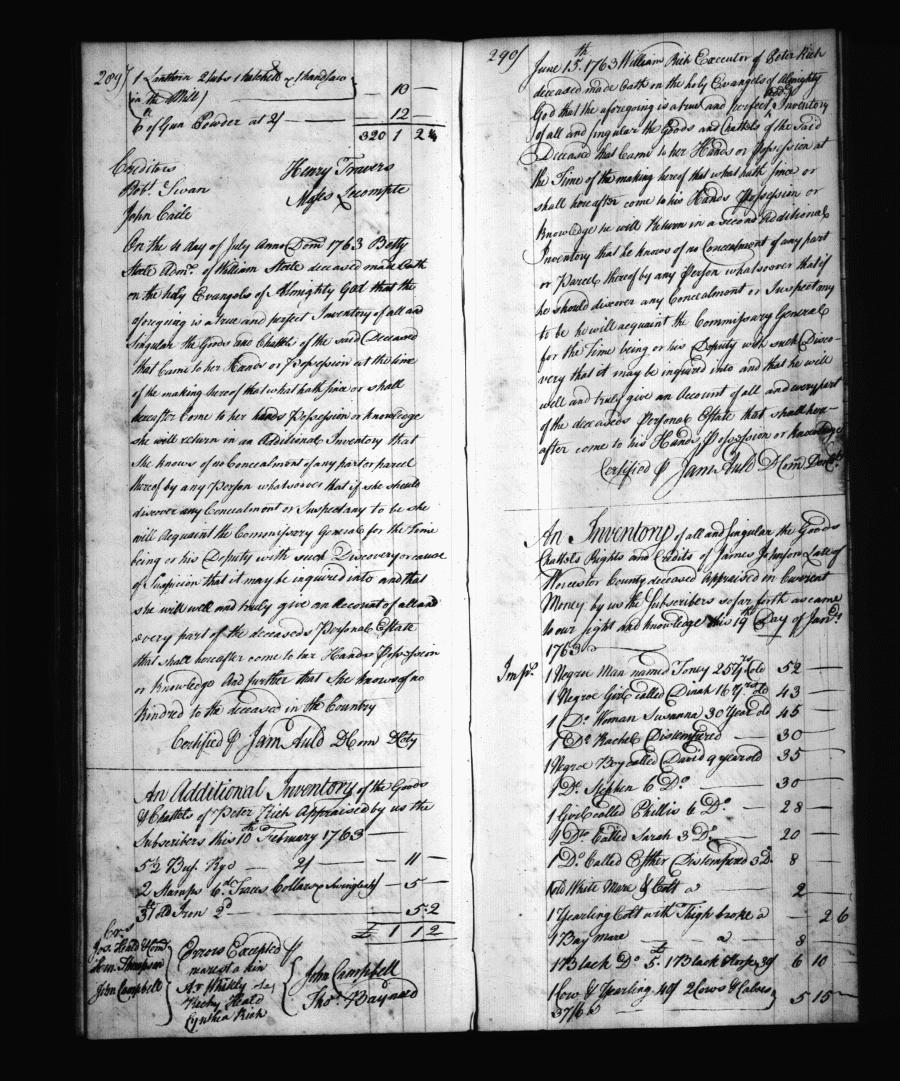 289
1 Lanthorn 2 tubs 1 hatchell & 1 hand saw
in the Mill — 10 —
6 lb of Gun Powder at 2/ — 12 —
320 1 2 1/4
Creditors Henry Travers
Robt. Swan Moses Lecompte
John Caile
On the 4 day of July Anno Dom 1763 Betty
Steele Admx. of William Steele deceased made Oath
on the holy Evangels of Almighty God that the
aforegoing is a true and perfect Inventory of all and
singular the Goods and Chattels of the said Deceased
that Came to her Hands or Possession at the time
of the making hereof that what hath since or shall
hereafter Come to her hands Possession or knowledge
she will return in an Additional Inventory that
she knows of no Concealment of any part or parcel
thereof by any Person whatsoever that if she should
discover any Concealment or Suspect any to be she
will Acquaint the Commissary General for the Time
being or his Deputy with such Discovery or cause
of Suspicion that it may be inquired into and that
she will well and truly give an Account of all and
every part of the deceaseds Personal Estate
that shall hereafter come to her Hands Possession
or knowledge And further that She knows of no
Kindred to the deceased in the Country
Certified P Jam Auld DCom DCoty
An Additional Inventory of the Goods
& Chattels of Peter Rich Appraised by us the
Subscribers this 10th February 1763 —
5 1/2 Bus. Rye 2/ — 11 —
2 Stamps 6d Traces Collars & Swingletree — 5 —
31 lb old Iron 2d — 5.2
£ 1 1 2
Crs.
Jos. Heald
Thompson
John Campbell
Errors Excepted P
nearest a kin
Heald
Cynthia Rich
John Campbell
Thos. Baynard
290
June 15th. 1763 William Rich Executor of Peter Rich
deceased made Oath on the holy Evangels of Almighty
God that the aforegoing is a true and perfect Inventory
of all and singular the Goods and Chattels of the said
Deceased that Came to her Hands or Possession at
the Time of the making hereof that what hath since or
shall hereafter come to his Hands Possession or
knowledge he will Return in a second Additional
Inventory that he knows of no Concealment of any part
or Parcel thereof by any Person whatsoever that if
he should discover any Concealment or Suspect any
to be he will acquaint the Commissary General
for the Time being or his Deputy with such Disco-
very that it may be inquired into and that he will
well and truly give an Account of all and every part
of the deceaseds Personal Estate that shall here-
after come to his Hands Possession or knowledge
Certified P Jam Auld DCom
An Inventory of all and singular the Goods
Chattels Rights and Credits of James Johnson Late of
Worcester County deceased Appraised in Current
Money by us the Subscribers so far forth as came
to our sight and knowledge this 19th Day of Jany.
1763
Imps. 1 Negroe Man named Toney 25 Yrs old 52 —
1 Negroe Girl called Dinah 16 Yrs old 43 —
1 Do. Woman Susanna 30 Year old 45 —
1 Do. Rachel Distempered — 30 —
1 Negroe Boy called David 9 year old 35 —
1 Do. Stephen 6 Do. — 30 —
1 Girl called Phillis 6 Do. — 28 —
1 Do. Called Sarah 3 Do. — 20 —
1 Do. Called Esther Distempered 3 Do. 8 —
1 old White Mare & Colt a — 2 —
1 Yearling Colt with Thigh broke a — 2 6
1 Bay mare a — 8 —
1 Black Do. £5. 1 Black Horse 30/ 6 10 —
1 Cow & Yearling 40/ 2 Cows & Calves
37/6 5 15 —